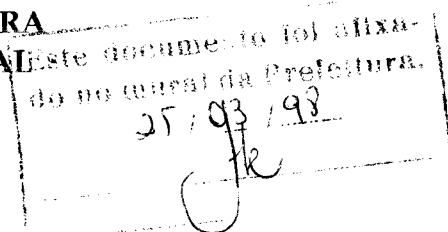 RA
AL
Este documento foi afixa-
do no mural da Prefeitura.
25 / 03 / 98